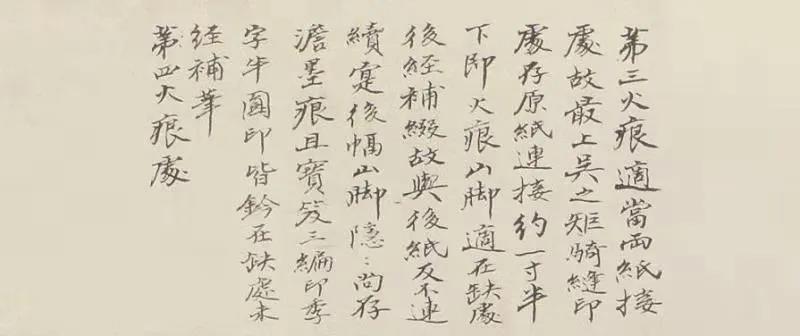 第三火痕適當兩紙接
處故最上吳之矩騎縫印
處存原紙連接約一寸半
下即火痕山脚適在缺處
後經補綴故與後紙反不連
續寔後幅山脚隱：尚存
澹墨痕且寶笈三編印季
字半圓印皆鈐在缺處未
經補筆
第四火痕處